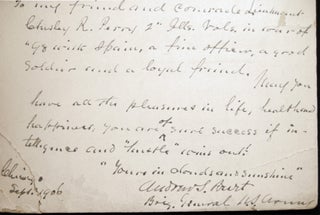 To my friend and comrade Lieutenant
Charley R. Perry 2" Ills. Vols. in war of
"98 with Spain, a fine officer, a good
Soldier and a loyal friend.
May you
have all the pleasures in life, health and
happiness, you are of sure success if in-
telligence and "hustle" wins out!
"Yours in clouds and sunshine"
Andrew S. Burt
Brig. General U.S. Army
Chicago
Sept. 1906